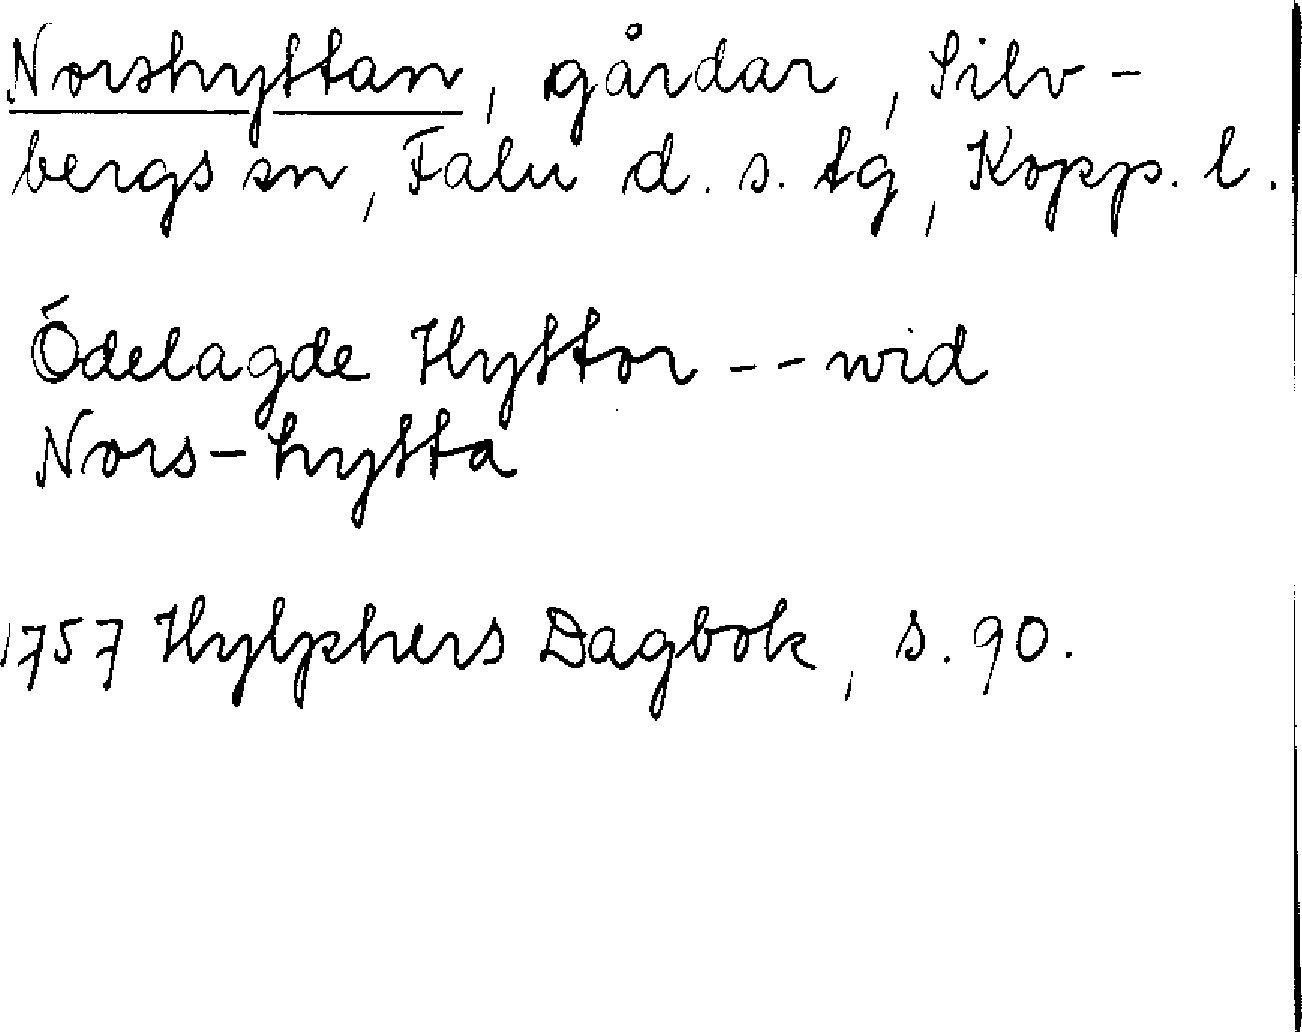 Norshyttan, gårdar, Silv-
bergs sn, Falu d. s. tg, Kopp. l.
Ödelagde Hyttor -- wid
Nors-hytta
1757 Hylphers Dagbok, s. 90.